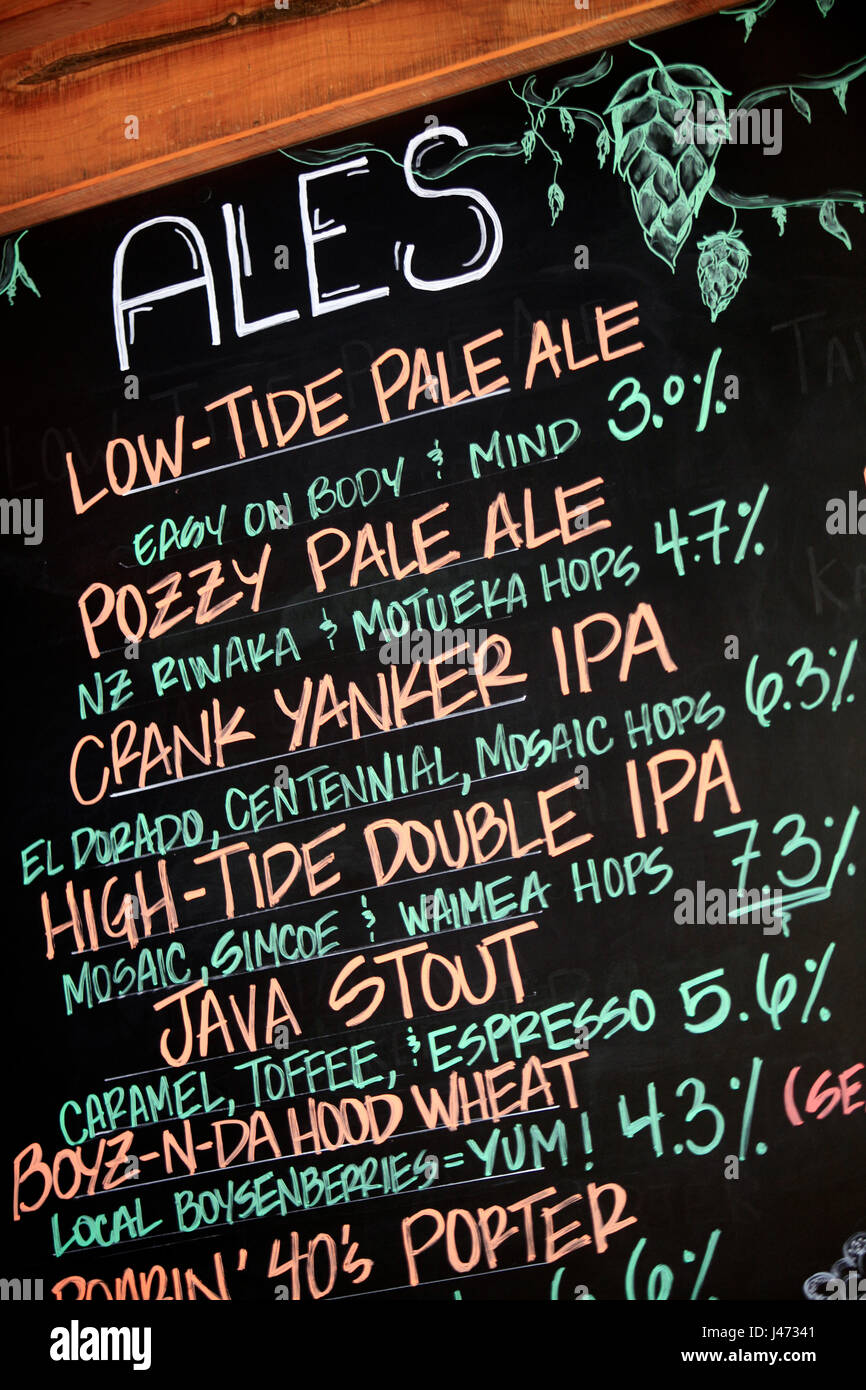 ALES
LOW-TIDE PALE ALE
EASY ON BODY & MIND 3.0%
POZZY PALE ALE
NZ RIWAKA & MOTUEKA HOPS 4.7%
CRANK YANKER IPA
EL DORADO, CENTENNIAL, MOSAIC HOPS 6.3%
HIGH-TIDE DOUBLE IPA
MOSAIC, SIMCOE & WAIMEA HOPS 7.3%
JAVA STOUT
CARAMEL, TOFFEE, & ESPRESSO 5.6%
BOYZ-N-DA HOOD WHEAT
LOCAL BOYSENBERRIES = YUM! 4.3% (SE
40's PORTER
alamy
alamy
Image ID: J47341
www.alamy.com